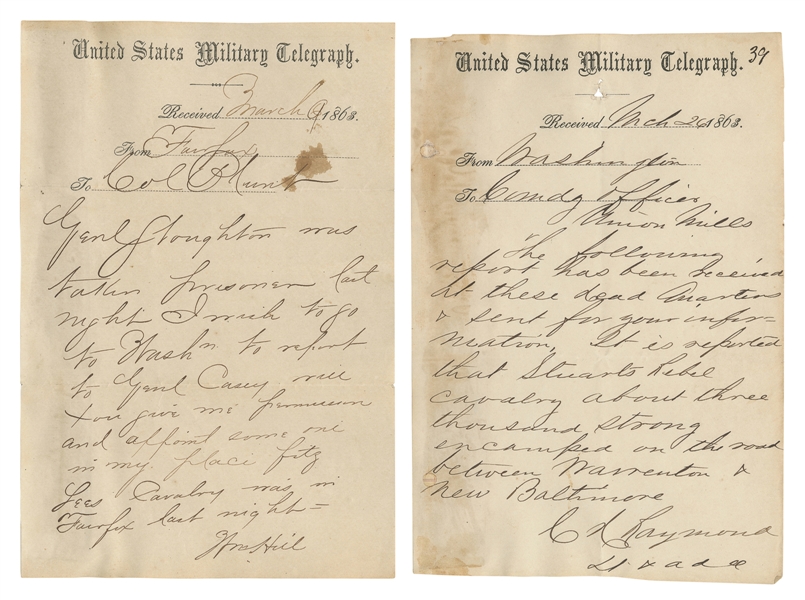 United States Military Telegraph.
Received March 9 1863.
From Fairfax
To Col Blunt
Genl Stoughton was
taken prisoner last
night I wish to go
to Wash'n to report
to Genl Casey will
you give me permission
and appoint some one
in my place Fitz
Lees Cavalry was in
Fairfax last night =
Wm Hill
United States Military Telegraph. 39
Received Mch 26 1863.
From Washington
To Comdg Officer
Union Mills
The following
report has been received
at these Head Quarters
& sent for your infor=
mation, It is reported
that Stuarts Rebel
cavalry about three
thousand strong
encamped on the road
between Warrenton &
New Baltimore
C Raymond
Lt & a d c